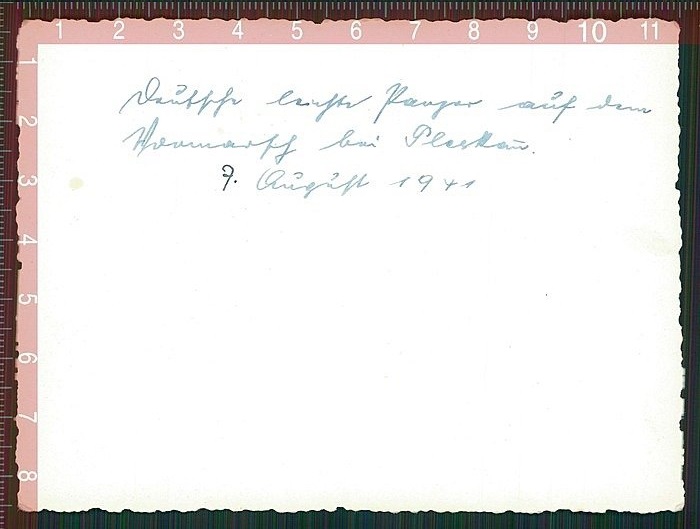 1 2 3 4 5 6 7 8 9 10 11
1
2
3
4
5
6
7
8
Deutsche leichte Panzer auf dem
Vormarsch bei Pleskau.
7. August 1941